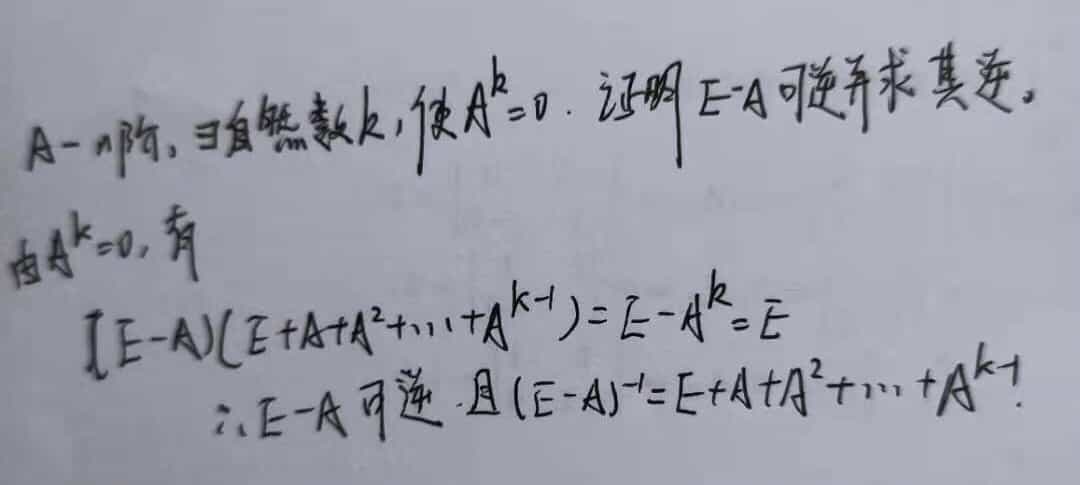 A-n阶,∃自然数k,使A^k=0.证明E-A可逆并求其逆。
由A^k=0,有
(E-A)(E+A+A²+...+A^{k-1})=E-A^k=E
∴E-A可逆.且(E-A)^{-1}=E+A+A²+...+A^{k-1}.